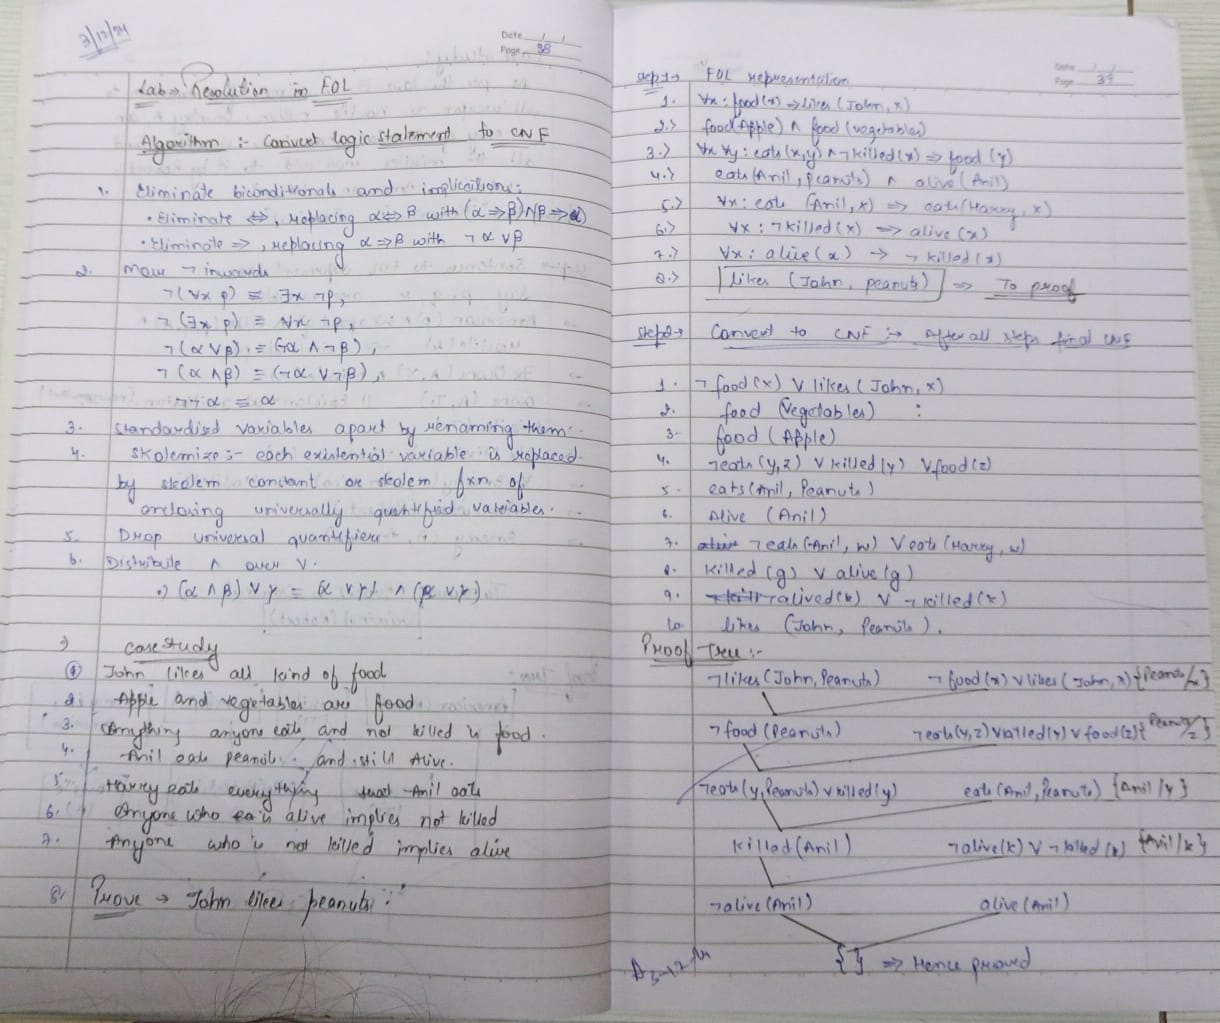 3/12/24
Date
Page 38
Lab → Resolution in FOL
Algorithm :- Convert logic statement to CNF
1. Eliminate biconditionals and implications:
• Eliminate ⇔, replacing α⇔β with (α⇒β)∧(β⇒α)
• Eliminate ⇒, replacing α⇒β with ¬α∨β
2. Move ¬ inwards
¬(∀x p) ≡ ∃x ¬p,
¬(∃x p) ≡ ∀x ¬p,
¬(α∨β) ≡ (¬α ∧ ¬β),
¬(α∧β) ≡ (¬α ∨ ¬β),
¬¬α ≡ α
3. Standardized variables apart by renaming them.
4. Skolemize :- each existential variable is replaced
by skolem constant or skolem fxn of
enclosing universally quantified variables.
5. Drop universal quantifiers
6. Distribute ∧ over ∨.
•) (α∧β)∨γ = (α∨γ) ∧ (β∨γ)
→ case study
① John likes all kind of food
2. Apple and vegetables are food
3. Anything anyone eats and not killed is food.
4. Anil eats peanuts and still Alive.
5. Harry eats everything that Anil eats
6. Anyone who is alive implies not killed
7. Anyone who is not killed implies alive
8. Prove → John likes peanuts
Date
Page 39
Step 1 → FOL representation
1. ∀x : food(x) ⇒ likes (John, x)
2.> food(Apple) ∧ food (vegetables)
3.> ∀x ∀y : eats(x,y) ∧ ¬killed(x) ⇒ food (y)
4.> eats (Anil, Peanuts) ∧ alive(Anil)
5.> ∀x : eats (Anil, x) ⇒ eats(Harry, x)
6.> ∀x : ¬killed(x) ⇒ alive(x)
7.> ∀x : alive(x) ⇒ ¬killed(x)
8.> likes (John, peanuts) ⇒ To proof
Step 2 → Convert to CNF :→ After all steps final CNF
1. ¬food(x) ∨ likes (John, x)
2. food (Vegetables) :
3. food (Apple)
4. ¬eats (y,z) ∨ killed(y) ∨ food(z)
5. eats (Anil, Peanuts)
6. Alive (Anil)
7. ¬eats (Anil, w) ∨ eats (Harry, w)
8. killed (g) ∨ alive (g)
9. ¬alived(k) ∨ ¬killed(k)
10 likes (John, Peanuts).
Proof Tree :-
¬likes (John, Peanuts) ¬food(x) ∨ likes (John, x) {Peanuts/x}
¬food (Peanuts) ¬eats(y,z) ∨ killed(y) ∨ food(z) {Peanuts/z}
¬eats(y, Peanuts) ∨ killed(y) eats (Anil, Peanuts) {Anil/y}
killed (Anil) ¬alive(k) ∨ ¬killed(k) {Anil/k}
¬alive (Anil) alive (Anil)
{ } ⇒ Hence proved